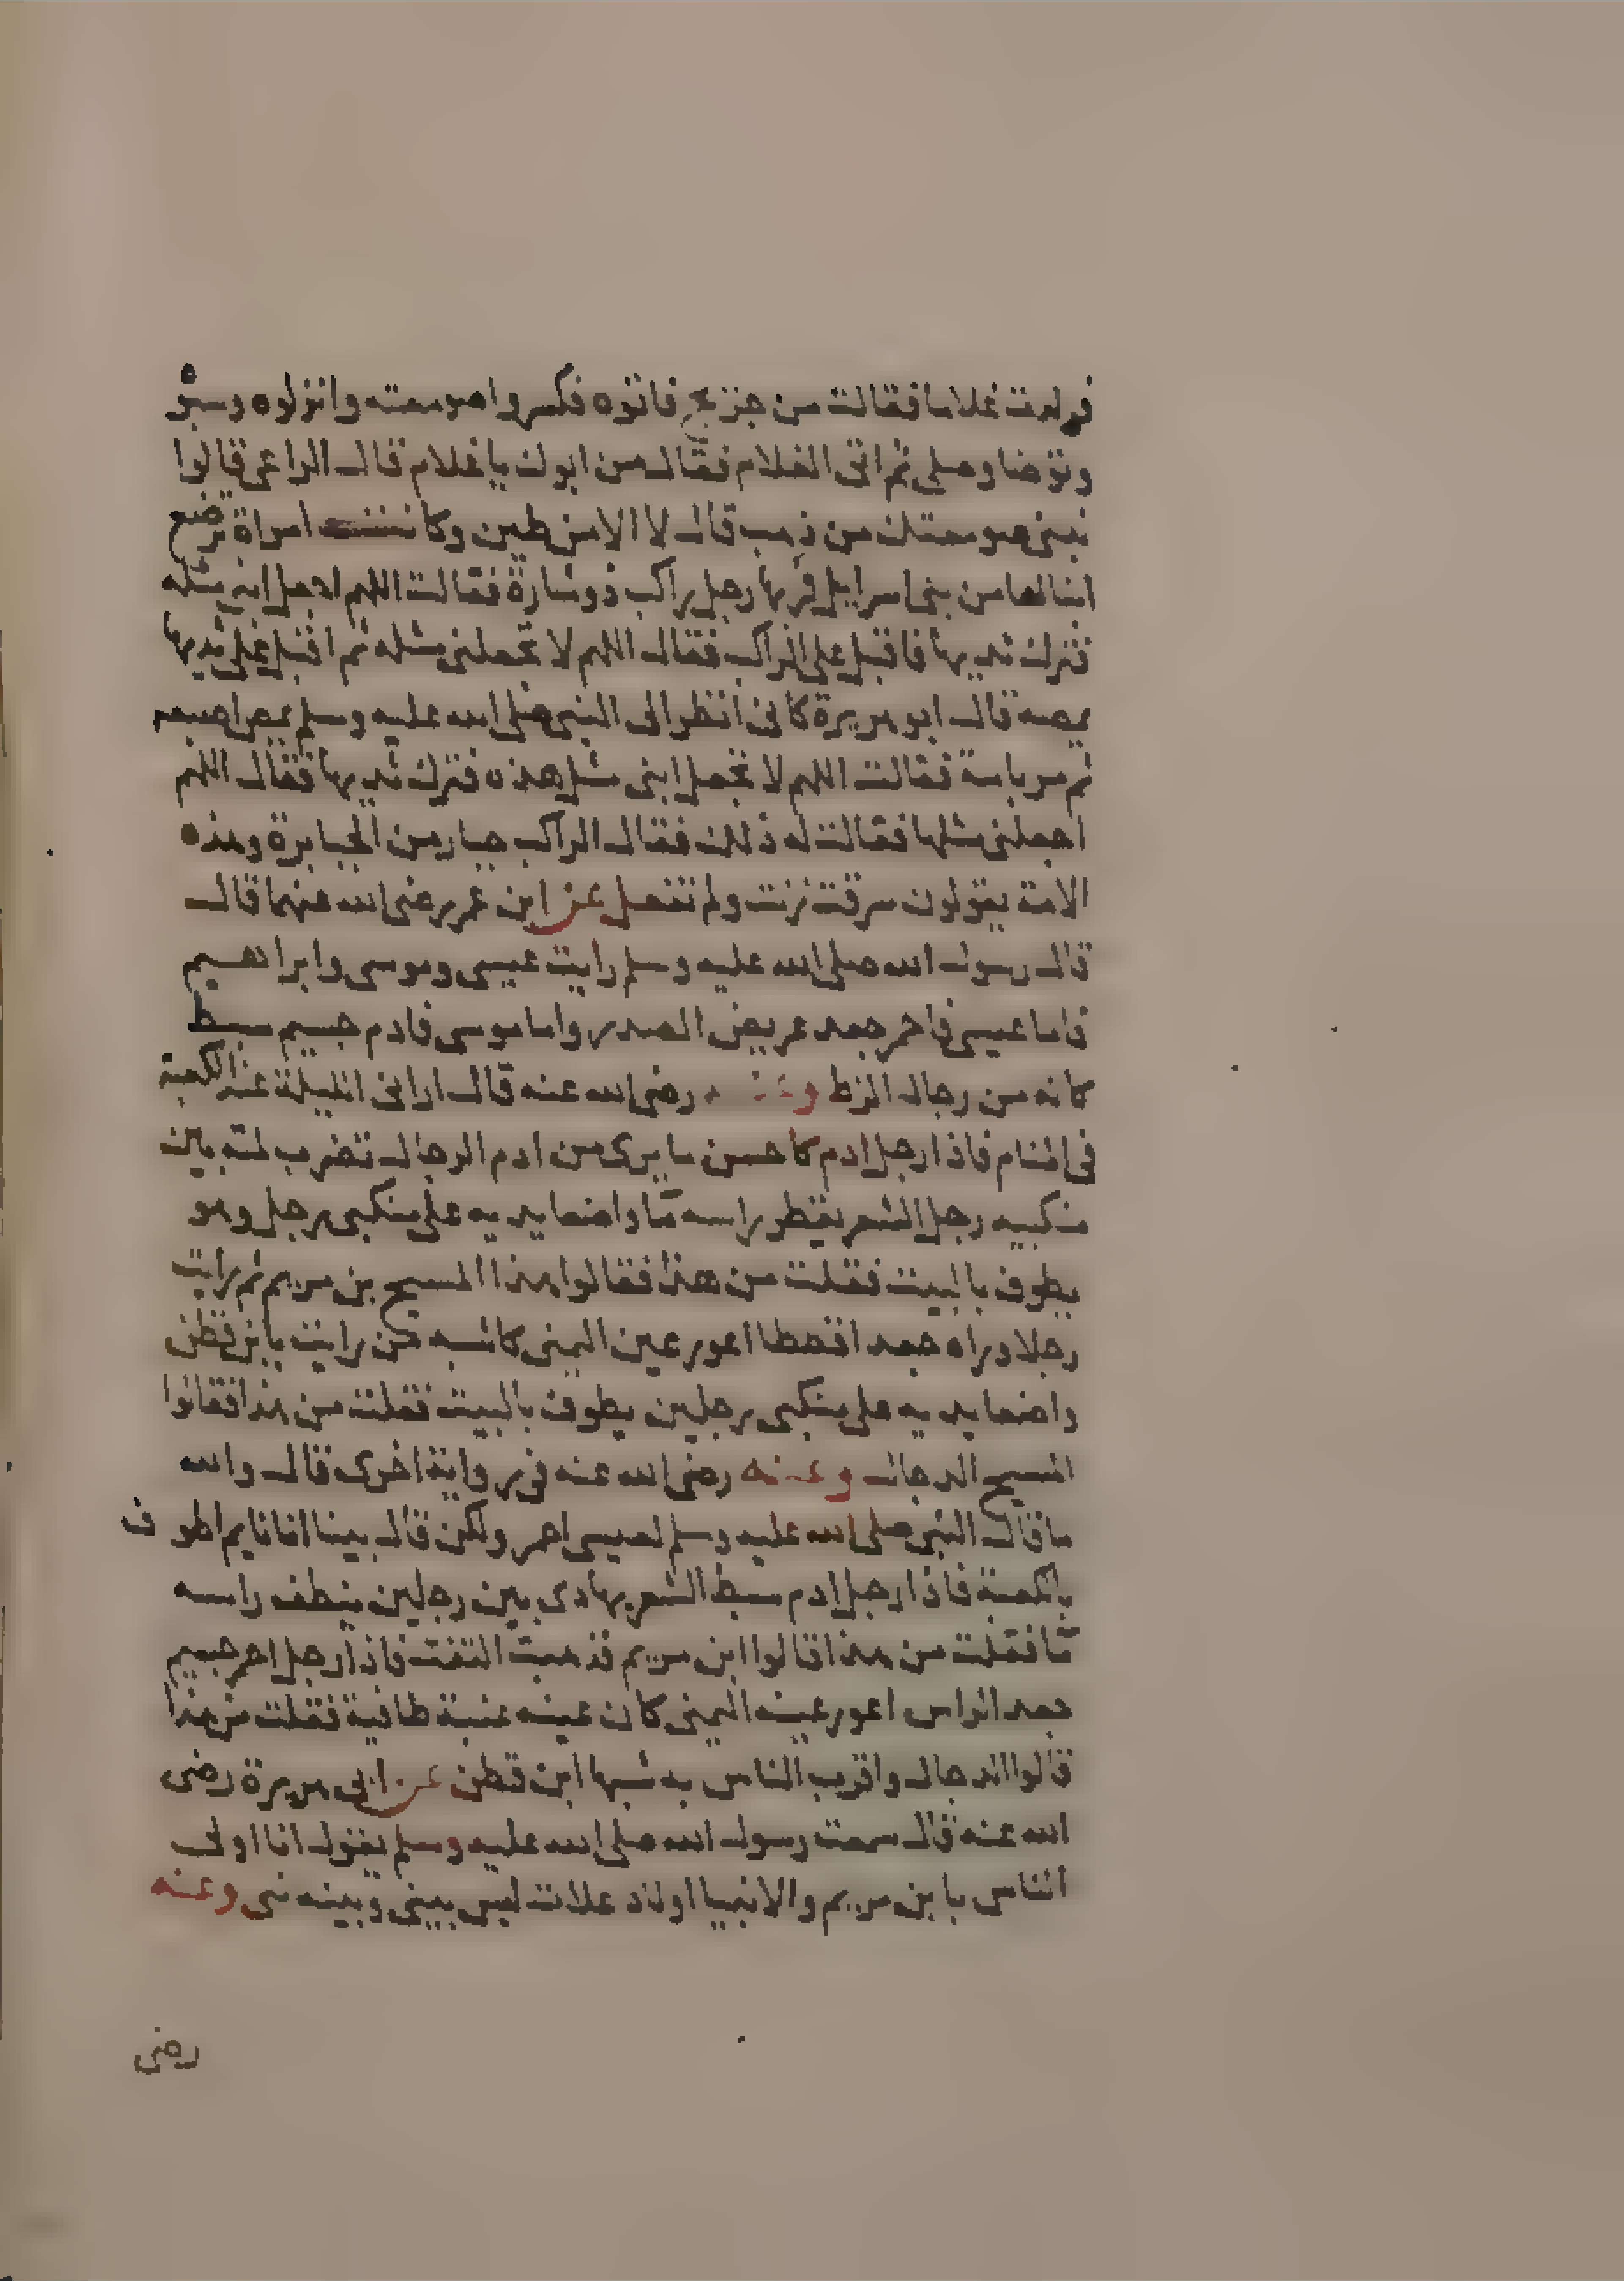 فولدت غلاما فقالت من جريج فاتوه فكسروا صومعته وانزلوه وسبوه
وتوضا وصلى ثم اتى الغلام فقال من ابوك يا غلام قال الراعى قالوا
نبنى صومعتك من ذهب قال لا الا من طين وكانت امراة ترضع
ابنا لها من بنى اسرايل فمر بها رجل راكب ذو شارة فقالت اللهم اجعل ابنى مثله
فترك ثديها فاقبل على الراكب فقال اللهم لا تجعلنى مثله ثم اقبل على ثديها
يمصه قال ابو هريرة كانى انظر الى النبى صلى الله عليه وسلم يمص اصبعه
ثم مر بامة فقالت اللهم لا تجعل ابنى مثل هذه فترك ثديها فقال اللهم
اجعلنى مثلها فقالت له ذلك فقال الراكب جبار من الجبابرة وهذه
الامة يقولون سرقت زنت ولم تفعل عن ابن عمر رضى الله عنهما قال
قال رسول الله صلى الله عليه وسلم رايت عيسى وموسى وابراهيم
فاما عيسى فاحمر جعد عريض الصدر واما موسى فادم جسيم سبط
كانه من رجال الزط وعنه رضى الله عنه قال ارانى الليلة عند الكعبة
فى المنام فاذا رجل ادم كاحسن ما يرى من ادم الرجال تضرب لمته بين
منكبيه رجل الشعر يقطر راسه مآ واضعا يديه على منكبى رجل وهو
يطوف بالبيت فقلت من هذا فقالوا هذا المسيح بن مريم ثم رايت
رجلا وراه جعد اقططا اعور عين اليمنى كاشبه من رايت بابن قطن
واضعا يديه على منكبى رجلين يطوف بالبيت فقلت من هذا فقالوا
المسيح الدجال وعنه رضى الله عنه فى رواية اخرى قال والله
ما قال النبى صلى الله عليه وسلم لعيسى احمر ولكن قال بينا انا نايم اطوف
بالكعبة فاذا رجل ادم سبط الشعر يهادى بين رجلين ينطف راسه
مآ فقلت من هذا قالوا ابن مريم فذهبت التفت فاذا رجل احمر جسيم
جعد الراس اعور عينه اليمنى كان عينه عنبة طافية فقلت من هذا
قالوا الدجال واقرب الناس به شبها ابن قطن عن ابى هريرة رضى
الله عنه قال سمعت رسول الله صلى الله عليه وسلم يقول انا اولى
الناس بابن مريم والانبيا اولاد علات ليس بينى وبينه نبى وعنه
رضى